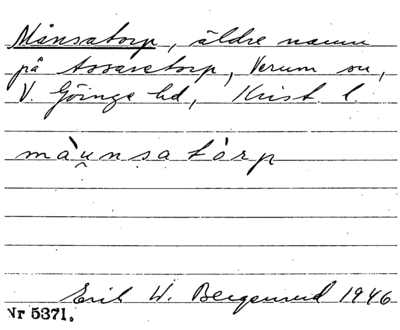 Månsatorp, äldre namn
på Assaretorp, Verum sn,
V. Göinge hd, Krist. l.
màu̯nsatòrp
Erik W. Bergenrud 1946
Nr 5371.